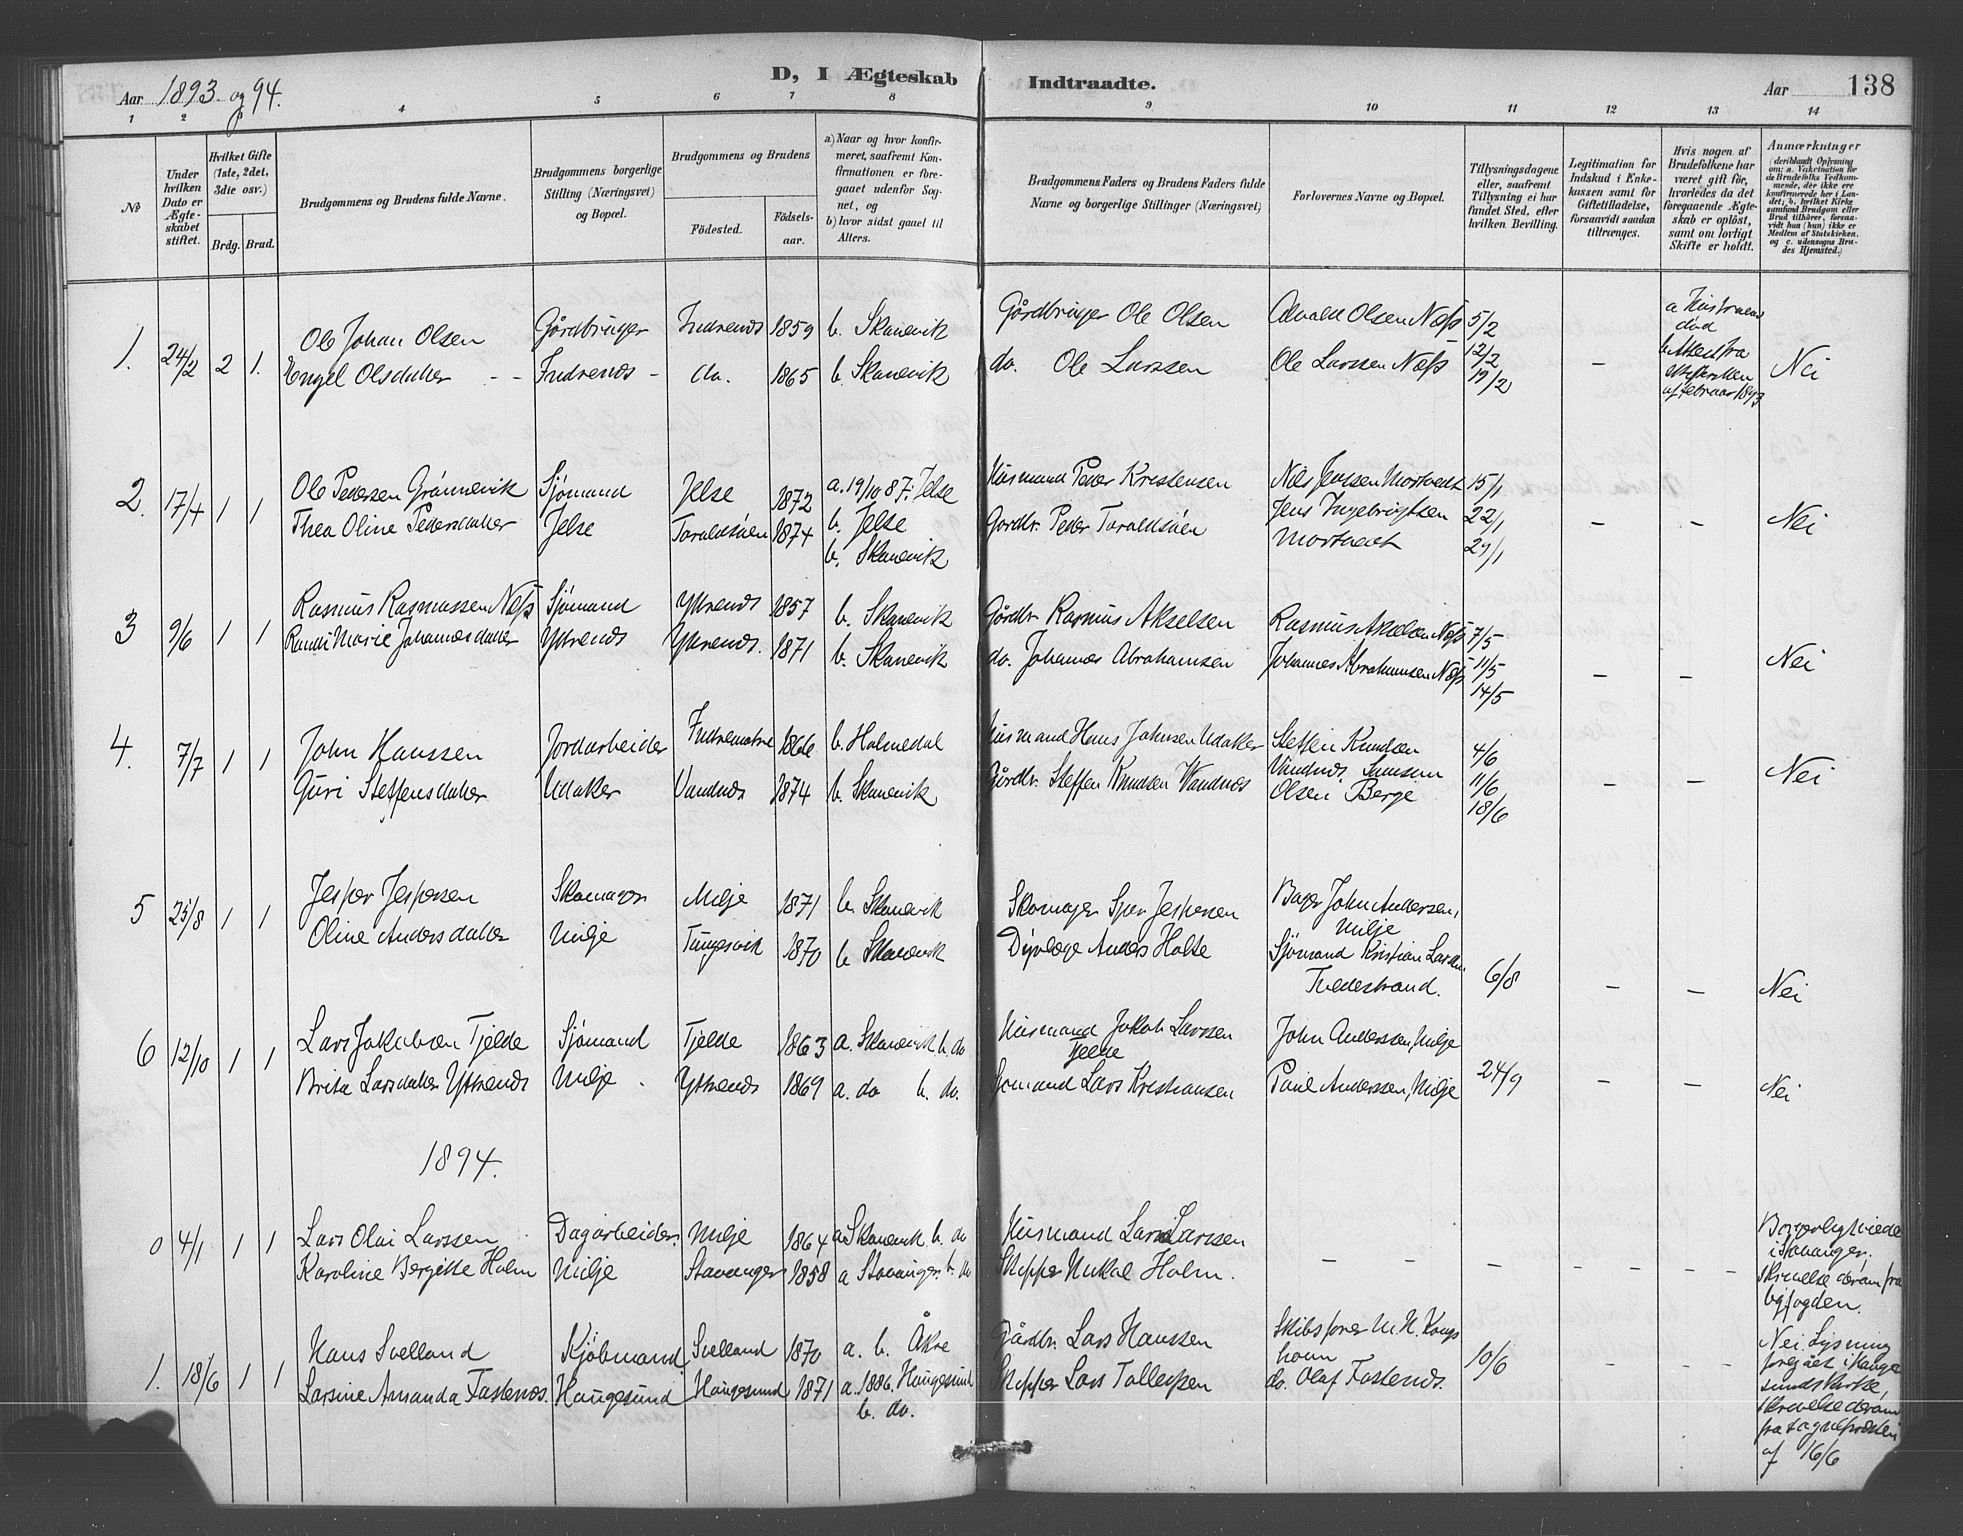 D, I Ægteskab Indtraadte.
Aar 1893 og 94.
Aar 138
1 2 4 5 6 7 8 9 10 11 12 13 14
№
Under hvilken Dato er Ægteskabet stiftet.
Hvilket Gifte (1ste, 2det, 3die osv.)
Brdg. Brud.
Brudgommens og Brudens fulde Navne.
Brudgommens borgerlige Stilling (Næringsvei) og Bopæl.
Brudgommens og Brudens
Fødested. Fødselsaar.
a) Naar og hvor konfirmeret, saafremt Konfirmationen er foregaaet udenfor Sognet, og
b) hvor sidst gaaet til Alters.
Brudgommens Faders og Brudens Faders fulde Navne og borgerlige Stillinger (Næringsvei)
Forlovernes Navne og Bopæl.
Tillysningsdagene eller, saafremt Tillysning ei har fundet Sted, efter hvilken Bevilling.
Legitimation for Indskud i Enkekassen samt for Giftetilladelse, forsaavidt saadan tiltrænges.
Hvis nogen af Brudefolkene har været gift før, hvorledes da det foregaaende Ægteskab er opløst, samt om lovligt Skifte er holdt.
Anmærkninger (deriblandt Oplysning om: a. Vakcination for de Brudefolks Vedkommende, der ikke ere konfirmerede her i Landet; b. hvilket Kirkesamfund Brudgom eller Brud tilhører, forsaavidt hun (han) ikke er Medlem af Statskirken, og c. udensogns Brudes Hjemsted.)
1. 24/2 2 1. Ole Johan Olsen Gårdbruger Indrenes 1859 b. Skanevik Gårdbruger Ole Olsen Advald Olsen Næss 5/2
Engel Olsdatter Indrenes do. 1865 b. Skanevik do. Ole Larssen Ole Larssen Næss 12/2 19/2 – a Hustruens død b. Attest fra af februar 1893 Nei
2. 17/4 1 1 Ole Pedersen Grönnevik Sjømand Jelse 1872 a. 19/10 87. Jelse Husmand Peder Kristensen Nils Jenssen Mortvedt 15/1
Thea Oline Pedersdatter Jelse Taraldsöen 1874 b. Jelse Gardbr. Peder Taraldsöen Jens Ingebrigtsen 22/1 – – Nei
b. Skanevik Mortvedt 29/1
3 9/6 1 1 Rasmus Rasmussen Næss Sjømand Ytrenes 1857 b. Skanevik Gårdbr. Rasmus Akselsen Rasmus Akselsen Næss 7/5
Randi Marie Johannesdatter Ytrenes Ytrenes. 1871 b. Skanevik do. Johannes Abrahamsen Johannes Abrahamsen Næss 11/5 – – Nei
14/5
4. 7/7 1 1 John Hanssen Jordarbeider Indrematre 1866 b. Holmedal Husmand Hans Johnsen Udaker Steffen Knudsen 4/6
Guri Steffensdatter Udaker Vandnes 1874 b. Skanevik Gårdbr. Steffen Knudsen Vandnes Vandnes, Samson 11/6 – – Nei
Olsen Berge 18/6
5 25/8 1 1 Jesper Jespersen Skomager Milje 1871 b. Skanevik Skomager Jespersen Bager John Andersen,
Oline Andersdatter Milje Tungesvik 1870 b Skanevik Dyrlæge Anders Holte Milje
Sjömand Kristian Larsen
Tvedestrand. 6/8 – – Nei
6 12/10 1 1 Lars Jakobsen Tjelde Sjømand Tjelde 1863 a. Skanevik b. do Husmand Jakob Larssen Tjelde John Anderssen, Milje
Brita Larsdatter Ytrenes Milje Ytrenes 1869 a. do b. do. Sjømand Lars Kristiansen Paul Anderssen, Milje 24/9 – – Nei
1894.
0 4/1 1 1 Lars Olai Larssen Dagarbeider Milje 1864 a Skanevik b. do Husmand Lars Larssen
Karoline Bergitte Holm Milje Stavanger 1858 a Stavanger b. do Skipper Mikal Holm. – – – – –
Borgerlig viede i Stavanger. Skrivelse derom fra byfogden.
1. 18/6 1 1 Hans Svelland Kjøbmand Svelland 1870 a. b. Åkre Gårdbr. Lars Hanssen Skibsfører M. H. Kongshavn
Larsine Amanda Fastenes. Haugesund Haugesund 1871 a. 1886. Haugesund b. do. Skipper Lars Tollefsen do. Olaf Fastenes. 10/6 – – –
Nei. Lysning foregået i Haugesunds kirke, Skrivelse derom fra sognepresten af 16/6